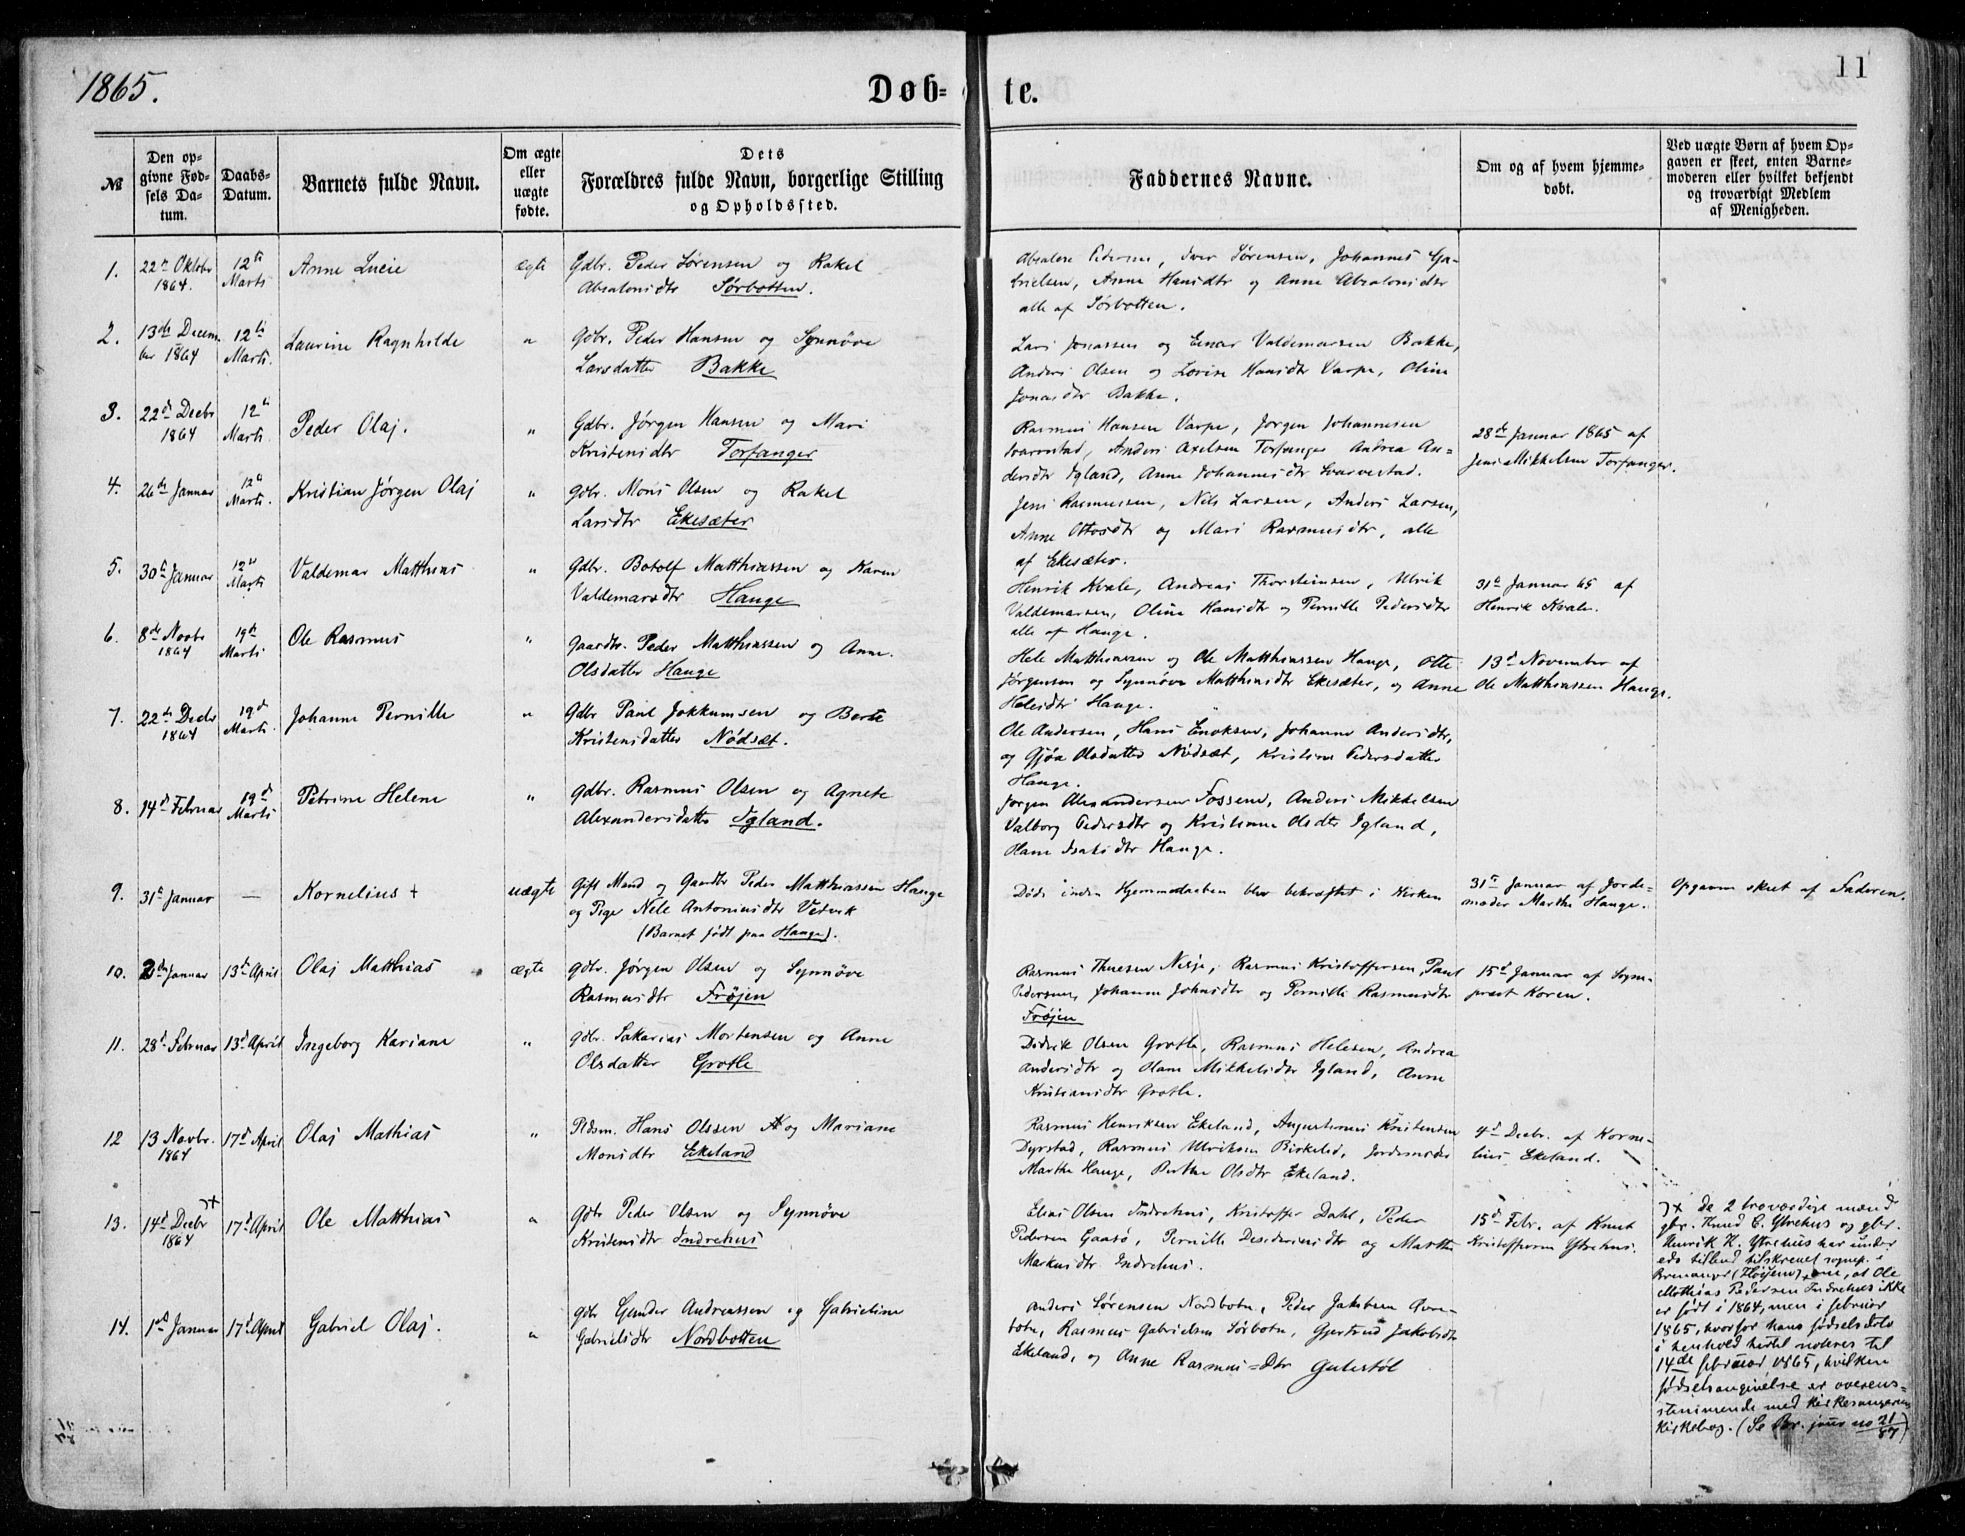 1865.
Døb-te.
11
№
Den opgivne Fødsels Datum.
Daabs-Datum.
Barnets fulde Navn.
Om ægte eller uægte fødte.
Dets Forældres fulde Navn, borgerlige Stilling og Opholdssted.
Faddernes Navne.
Om og af hvem hjemmedøbt.
Ved uægte Børn af hvem Opgaven er skeet, enten Barnemoderen eller hvilket bekjendt og troværdigt Medlem af Menigheden.
1. 22de Oktober 1864. 12te Marts Anne Lucie ægte Gdbr. Peder Sørensen og Rakel
Absalonsdtr Sørbotten.
Absalon Pedersen, Iver Sørensen, Johannes Ga-
brielsen, Anne Hansdtr og Anne Absalonsdtr
alle af Sørbotten.
2. 13de Decem-
ber 1864 12te Marts. Laurine Ragnhilde " Gdbr. Peder Hansen og Synnøve
Larsdatter Bakke
Lars Jonassen og Einar Valdemarsen Bakke,
Anders Olsen og Lovise Hansdtr Varpe, Oline
Jonasdtr Bakke.
3. 22de Decbr 1864 12te Marts. Peder Olaj. " Gdbr. Jørgen Hansen og Mari
Kristensdtr Torfanger
Rasmus Hansen Varpe, Jørgen Johannesen
Svarvestad, Anders Axelsen Torfanger Andrea An-
dersdtr Igland, Anne Johannesdtr Svarvestad.
28de Januar 1865 af
Jens Mikkelsen Torfanger.
4. 26de Januar 12te Marts. Kristian Jørgen Olaj " Gdbr. Mons Olsen og Rakel
Larsdtr Ekesæter
Jens Rasmussen, Nils Larsen, Anders Larsen,
Anne Ottosdtr og Mari Rasmusdtr, alle
af Ekesæter.
5. 30te Januar 12te Marts Valdemar Matthias " Gdbr. Botolf Matthiassen og Karen
Valdemarsdtr Hauge
Henrik Kvale, Andreas Thorsteinsen, Ulrik
Valdemarsen, Oline Hansdtr og Pernille Pedersdtr
alle af Hauge.
31te Januar 65 af
Henrik Kvale.
6. 8de Novbr 1864 19de Marts Ole Rasmus " Gaardbr. Peder Matthiassen og Anne
Olsdatter Hauge
Hele Matthiassen og Ole Matthiassen Hauge, Otte
Jørgensen og Synnøve Matthiasdtr Ekesæter, og Anne
Helesdtr Hauge.
13de November af
Ole Matthiassen Hauge.
7. 22de Decbr 1864 19de Marts. Johanne Pernille " Gdbr Paul Jokkumsen og Berte
Kristensdatter Nødset.
Ole Andersen, Hans Enoksen, Johanne Andersdtr,
og Gjøa Olsdatter Nødset, Kristine Pedersdatter
Hauge.
8. 14de Februar 19de Marts Petrine Helene " Gdbr. Rasmus Olsen og Agnete
Alexandersdatter Igland.
Jørgen Alexandersen Fossene, Anders Mikkelsen
Valborg Pedersdtr og Kristianne Olsdtr Igland,
Hane Isaksdtr Hauge.
9. 31te Januar — Kornelius + uægte Gift Mand og Gaardbr Peder Matthiassen Hauge
og Pige Nele Antonisdtr Vedvik
(Barnet født paa Hauge).
Døde inden Hjemmedaaben blev bekræftet i Kirken
31te Januar af Jorde-
moder Marthe Hauge.
Opgaven skeet af Faderen.
10. 2den Januar 13de April Olaj Matthias ægte Gdbr. Jørgen Olsen og Synnøve
Rasmusdtr Frøjen
Rasmus Thuesen Nesje, Rasmus Kristoffersen, Paul
Pedersen, Johanne Johnsdtr og Pernille Rasmusdtr
Frøjen
15de Januar af Sogne-
præst Koren.
11. 28de Februar 13de April Ingeborg Kariane " Gdbr. Sakarias Mortensen og Anne
Olsdatter Grotle
Didrik Olsen Grotle, Rasmus Helesen, Andrea
Andersdtr og Hane Mikkelsdtr Igland, Anne
Kristiansdtr Grotle.
12 13 Novbr. 1864 17de April Olaj Mathias " Pldsm. Hans Olssen og Mariane
Monsdtr Ekeland
Rasmus Henriksen Ekeland, Augustinus Kristensen
Dyrstad, Rasmus Ulriksen Birkelid, Jordemoder
Marthe Hauge, Berthe Olsdtr Ekeland.
4de Decbr. af Korne-
lius Ekeland.
13. 14de Decbr 1864 17de April Ole Matthias " Gdbr Peder Olsen og Synnøve
Kristensdtr Indrehus
Elias Olsen Indrehus, Kristoffer Dahl, Peder
Pedersen Gaasø, Pernille Desideriusdtr og Marthe
Markusdtr Indrehus.
15de Febr. af Knut
Kristoffersen Ytrehus.
De 2 troværdige mænd
gbr. Knud C. Ytrehus og gbr.
Henrik K. Ytrehus har under
eds tilbud tilskrevet sognep.
Bremanger (Høisæter), om, at Ole
Mathias Pedersen Indrehus ikke
er født i 1864, men i februar
1865, hvorfor hans fødselsdato
i henhold hertil noteres til
14de februar 1865, hvilken
fødselsangivelse er overens-
stemmende med kirkesangerens
kirkebog. (Se Br. jour no 21/87)
14. 1ste Januar 17de April Gabriel Olaj. " Gdbr Gunder Andreassen og Gabrieline
Gabrielsdtr Nordbotten
Anders Sørensen Nordbotn, Peder Jakobsen
botn, Rasmus Gabrielsen Sørbotn, Gjertrud Jakobsdtr
Ekeland, og Anne Rasmus=Dtr Gulestøl